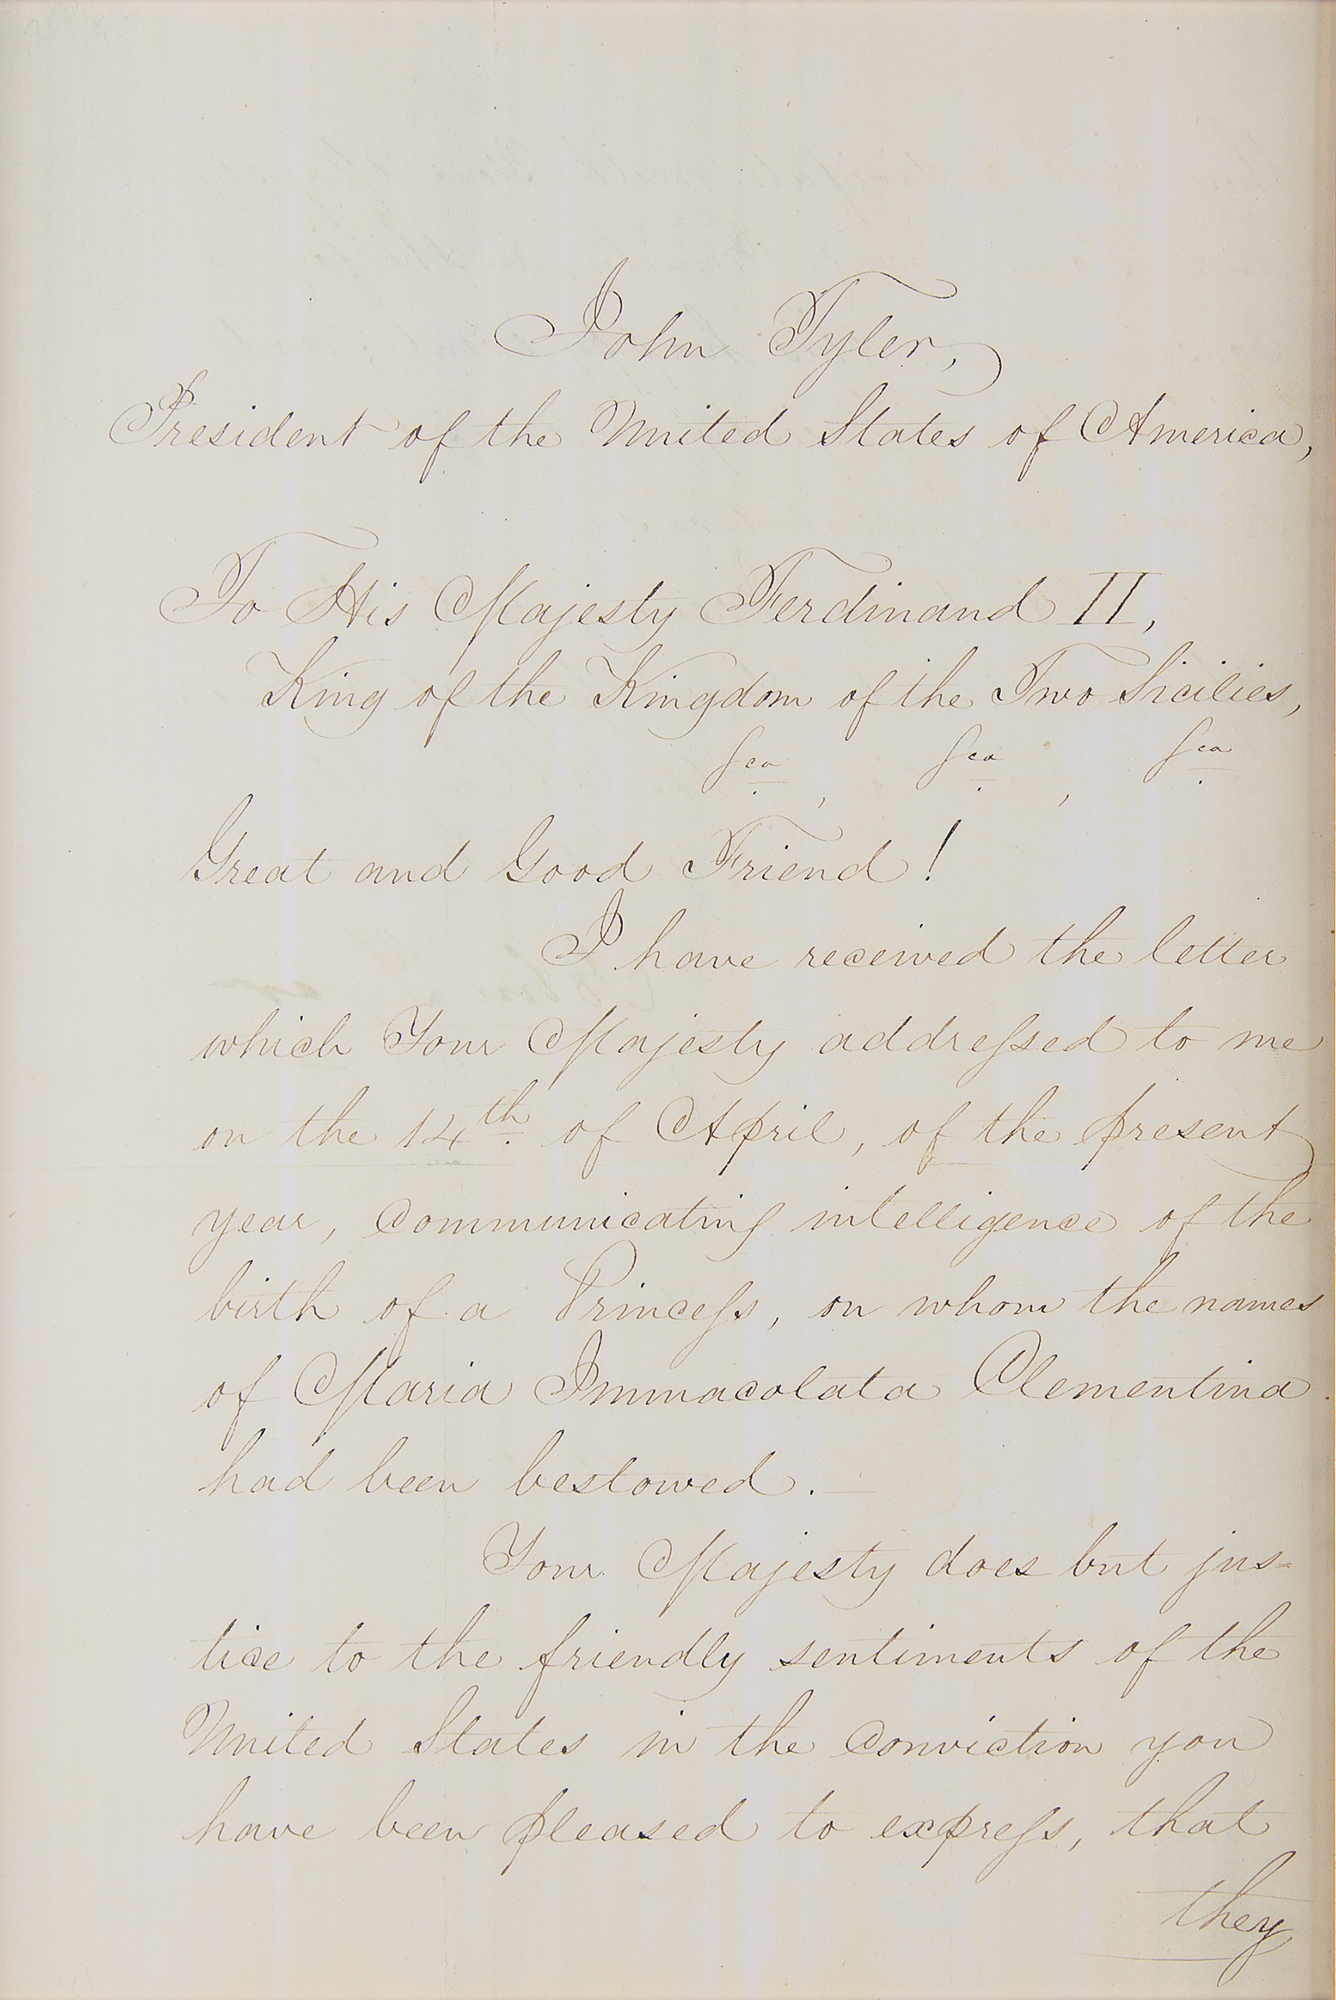 John Tyler,
President of the United States of America,
To His Majesty Ferdinand II,
King of the Kingdom of the Two Sicilies,
&ca, &ca, &ca
Great and Good Friend!
I have received the letter
which Your Majesty addressed to me
on the 14th of April, of the present
year, communicating intelligence of the
birth of a Princess, on whom the names
of Maria Immacolata Clementina
had been bestowed.
Your Majesty does but jus=
tice to the friendly sentiments of the
United States in the conviction you
have been pleased to express, that
they